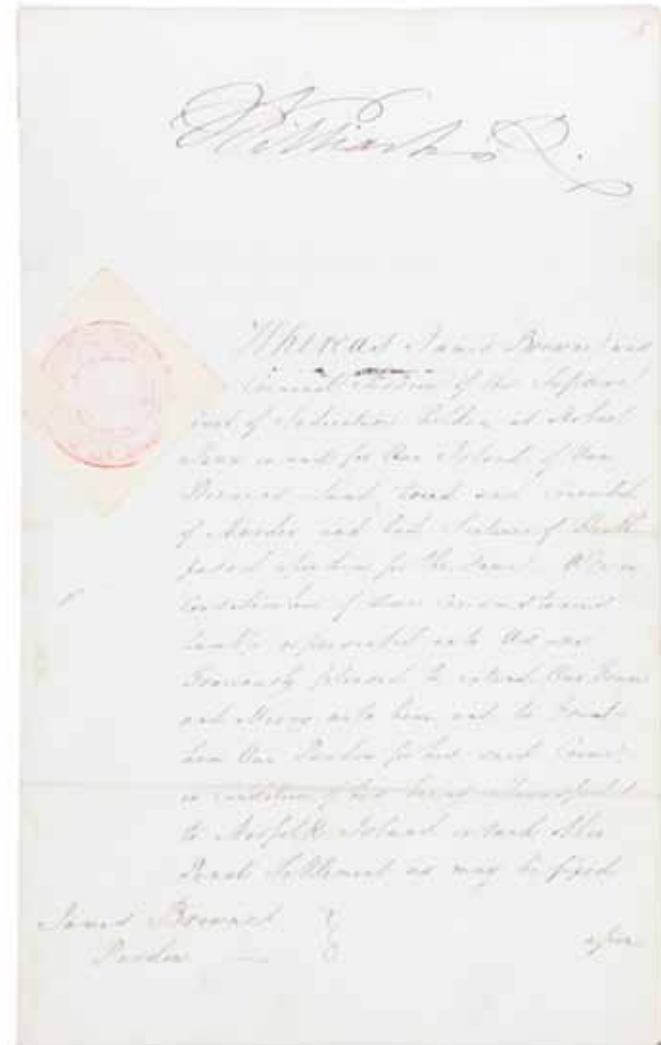 William R.
Whereas James Browne was
Criminal Session of the Supreme
Court of Judicature holden at Hobart
Town in and for Our Island of Van
Diemens Land tried and convicted
of Murder and had Sentence of Death
passed upon him for the same. We in
consideration of some circumstances
humbly represented unto Us are
Graciously pleased to extend Our Grace
and Mercy unto him and to Grant
him Our Pardon for his said Crime
on condition of his being transported
to Norfolk Island or such other
Penal Settlement as may be fixed
upon
James Browne's
Pardon